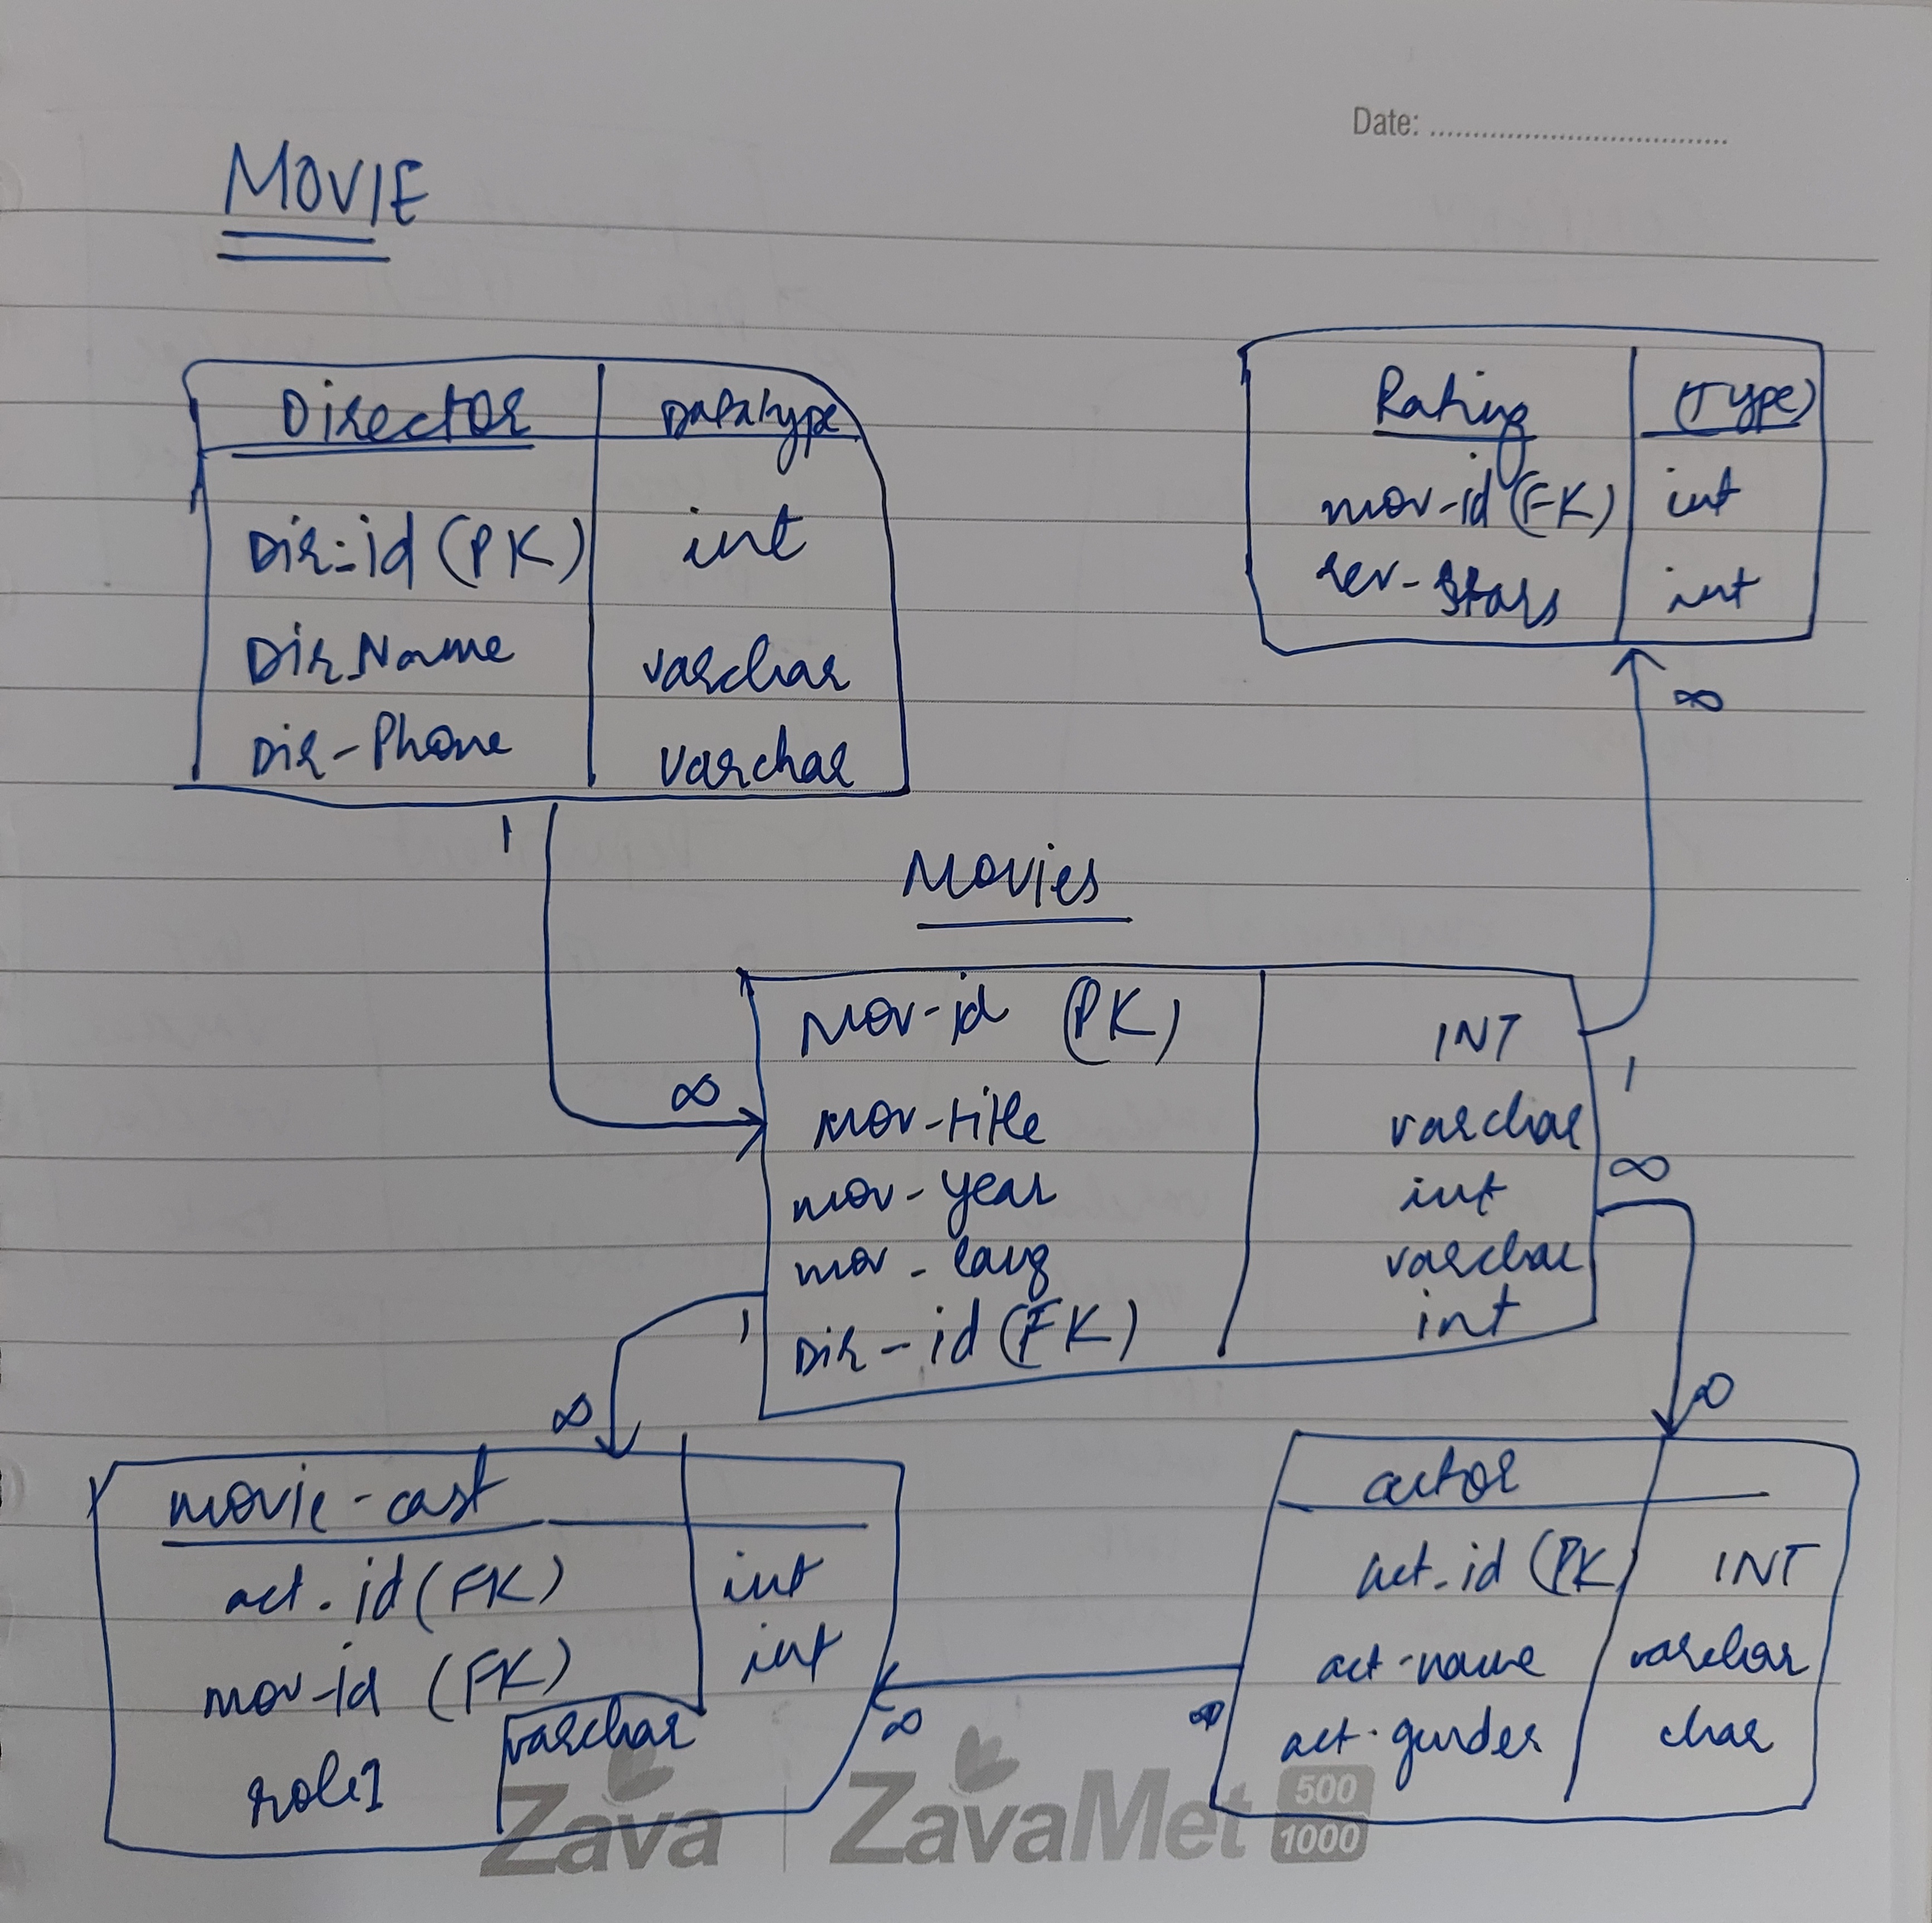 Date:
MOVIE
Director Datatype
Dir-id (PK) int
Dir_Name varchar
Dir-Phone varchar
1
Rating (Type)
mov-id (FK) int
rev-stars int
∞
Movies
Mov-id (PK) INT
1
∞
Mov-title varchar
∞
mov-year int
mov-lang varchar
1
Dir-id (FK) int
∞
∞
movie-cast
act-id (FK) int
mov-id (FK) int
role1 varchar
actor
act-id (PK INT
act-name varchar
act-gender char
∞
∞
Zava ZavaMet 500
1000